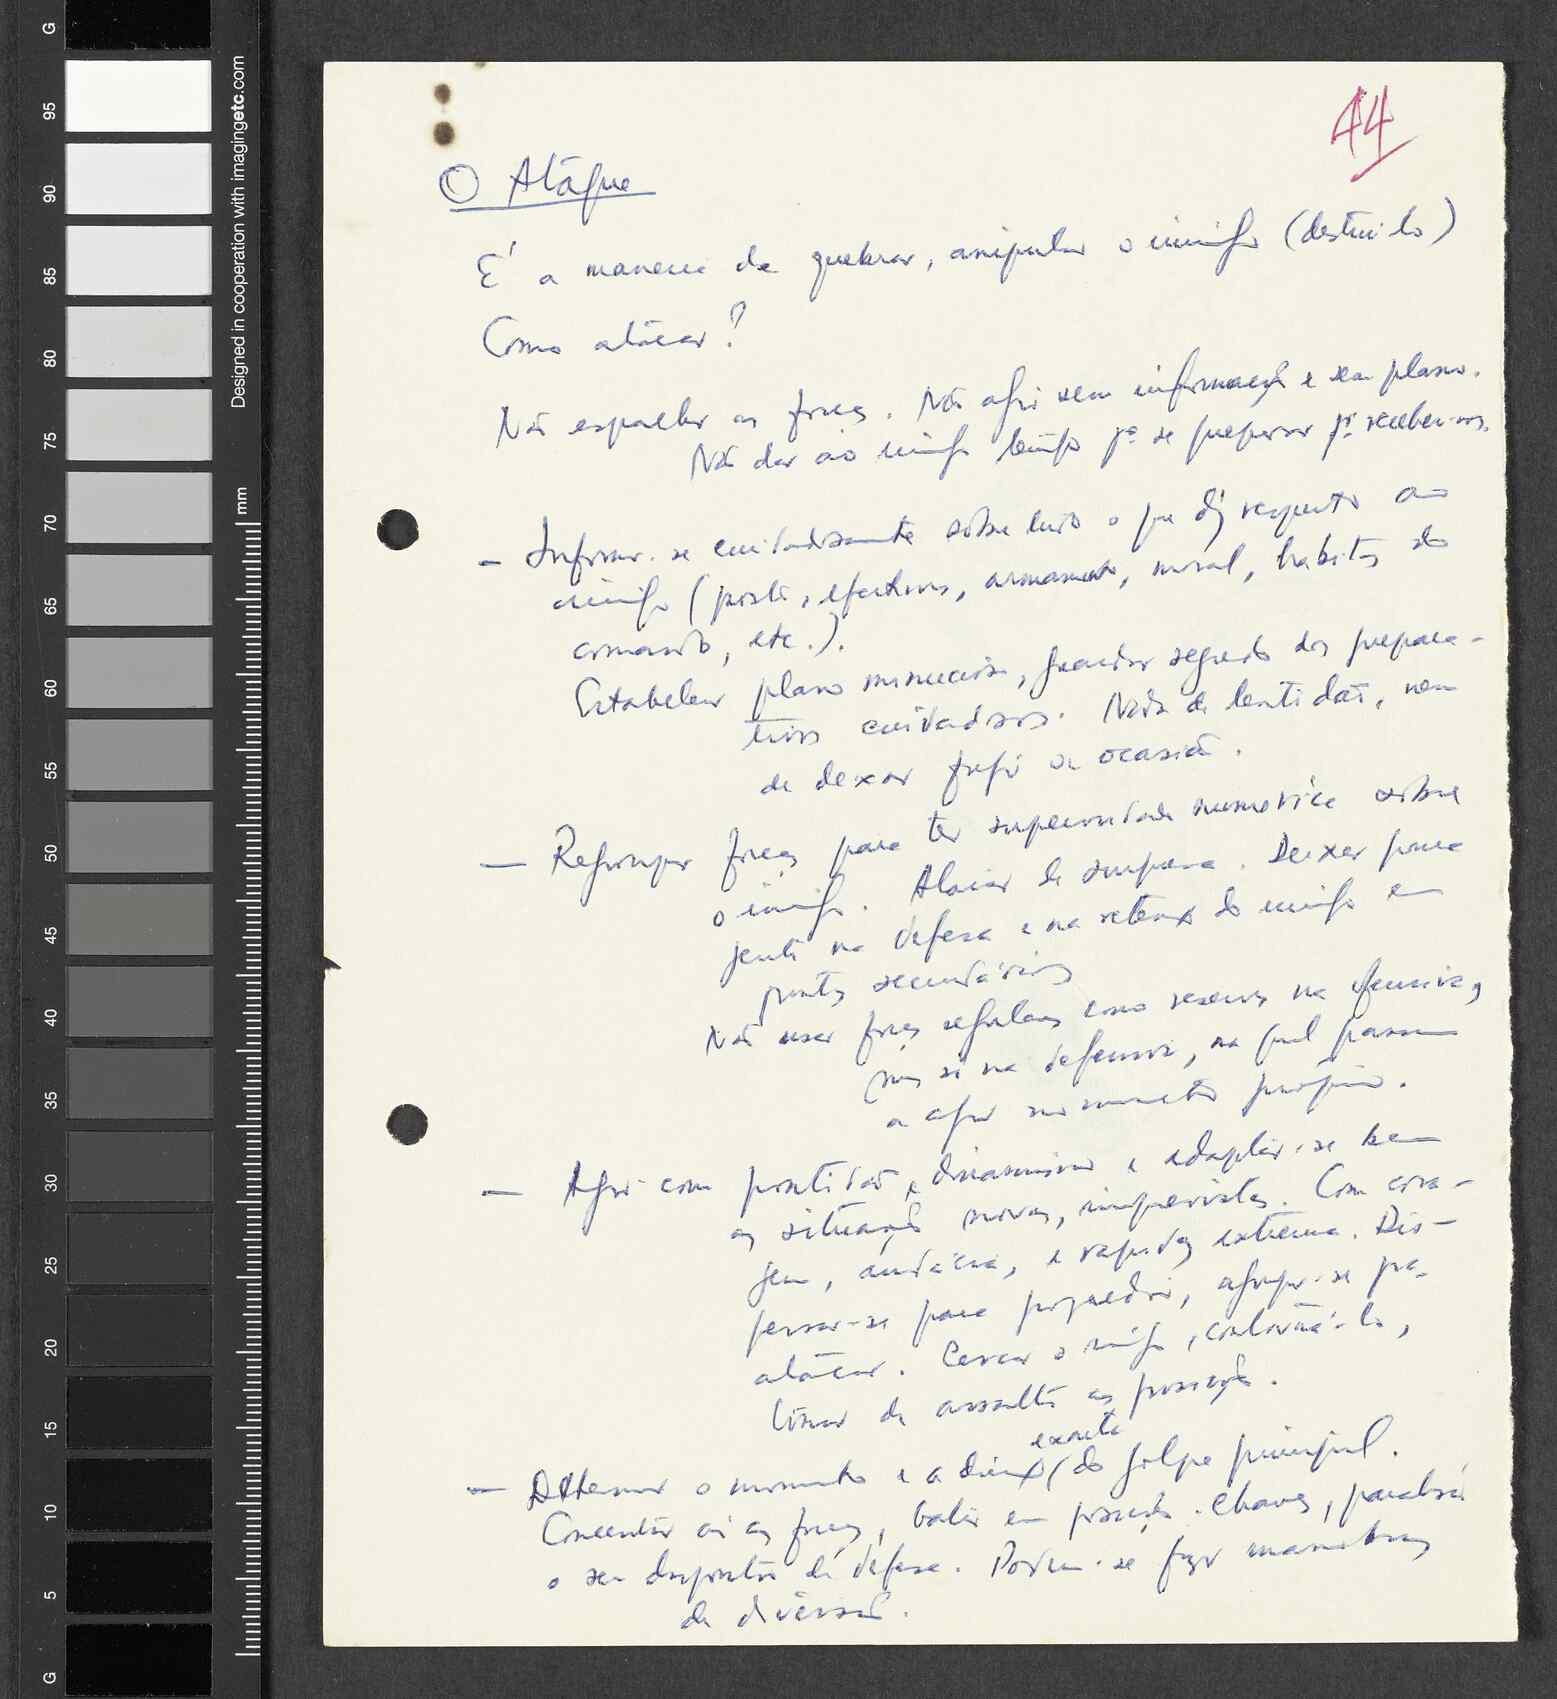 44
O Ataque
É a maneira de quebrar, aniquilar o inimigo (destrui-lo)
Como atacar?
Não espalhar as forças. Não agir sem informação e sem plano.
Não dar ao inimigo tempo pª se preparar pª receber-nos.
- Informar-se cuidadosamente sobre tudo o que diz respeito ao
inimigo (posto, efectivos, armamento, moral, habitos do
comando, etc.).
Estabelecer plano minucioso, guardar segredo dos prepara-
tivos cuidadosos. Nada de lentidão, nem
de deixar fugir a ocasião.
- Reagrupar forças para ter superioridade numerica sobre
o inimigo. Atacar de surpresa. Deixar pouca
gente na defesa e na retenção do inimigo em
pontos secundários
Não usar forças regulares como reservas na ofensiva,
mas só na defensiva, na qual passam
a agir no momento próprio.
- Agir com prontidão, dinamismo e adaptar-se bem
as situações novas, imprevistas. Com cora-
gem, audácia, e rapidez extrema. Dis-
persar-se para progredir, agrupar-se pa.
atacar. Cercar o inimigo, contorná-lo,
tomar de assalto as posições.
- Determinar o momento e a direcção exacta do golpe principal.
Concentrar aí as forças, bater em posições-chaves, paralisar
o seu dispositivo de defesa. Podem-se fazer manobras
de diversão.
G
95
90
85
80
75
70
65
60
55
50
45
40
35
30
25
20
15
10
5
G
Designed in cooperation with imagingetc.com
mm